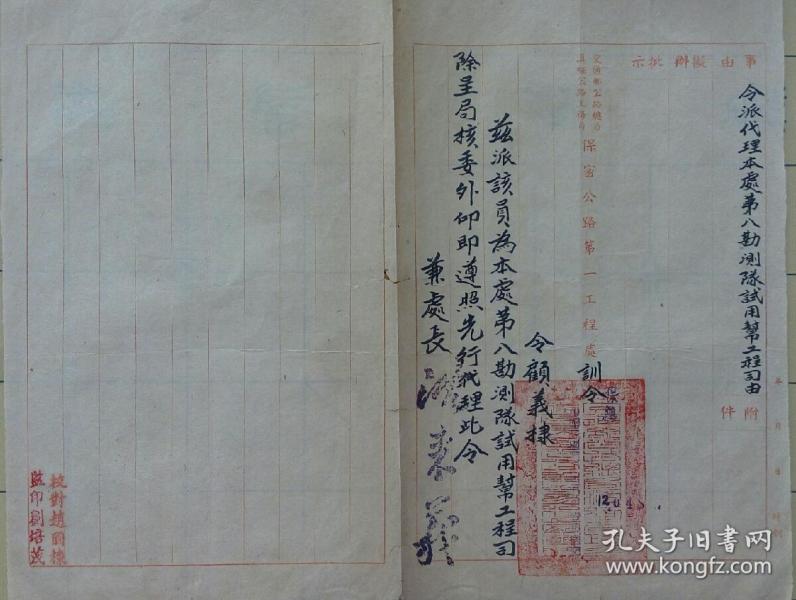 事由 擬辦 批示
令派代理本處第八勘測隊試用幫工程司由
附件
年 月 日 時
交通部公路總局
滇緬公路工務局
保密公路第一工程處訓令
令顧義棣
茲派該員為本處第八勘測隊試用幫工程司
除呈局核委外仰即遵照先行代理此令
兼處長
校對趙國棟
監印劉培茂
孔夫子旧书网
www.kongfz.com